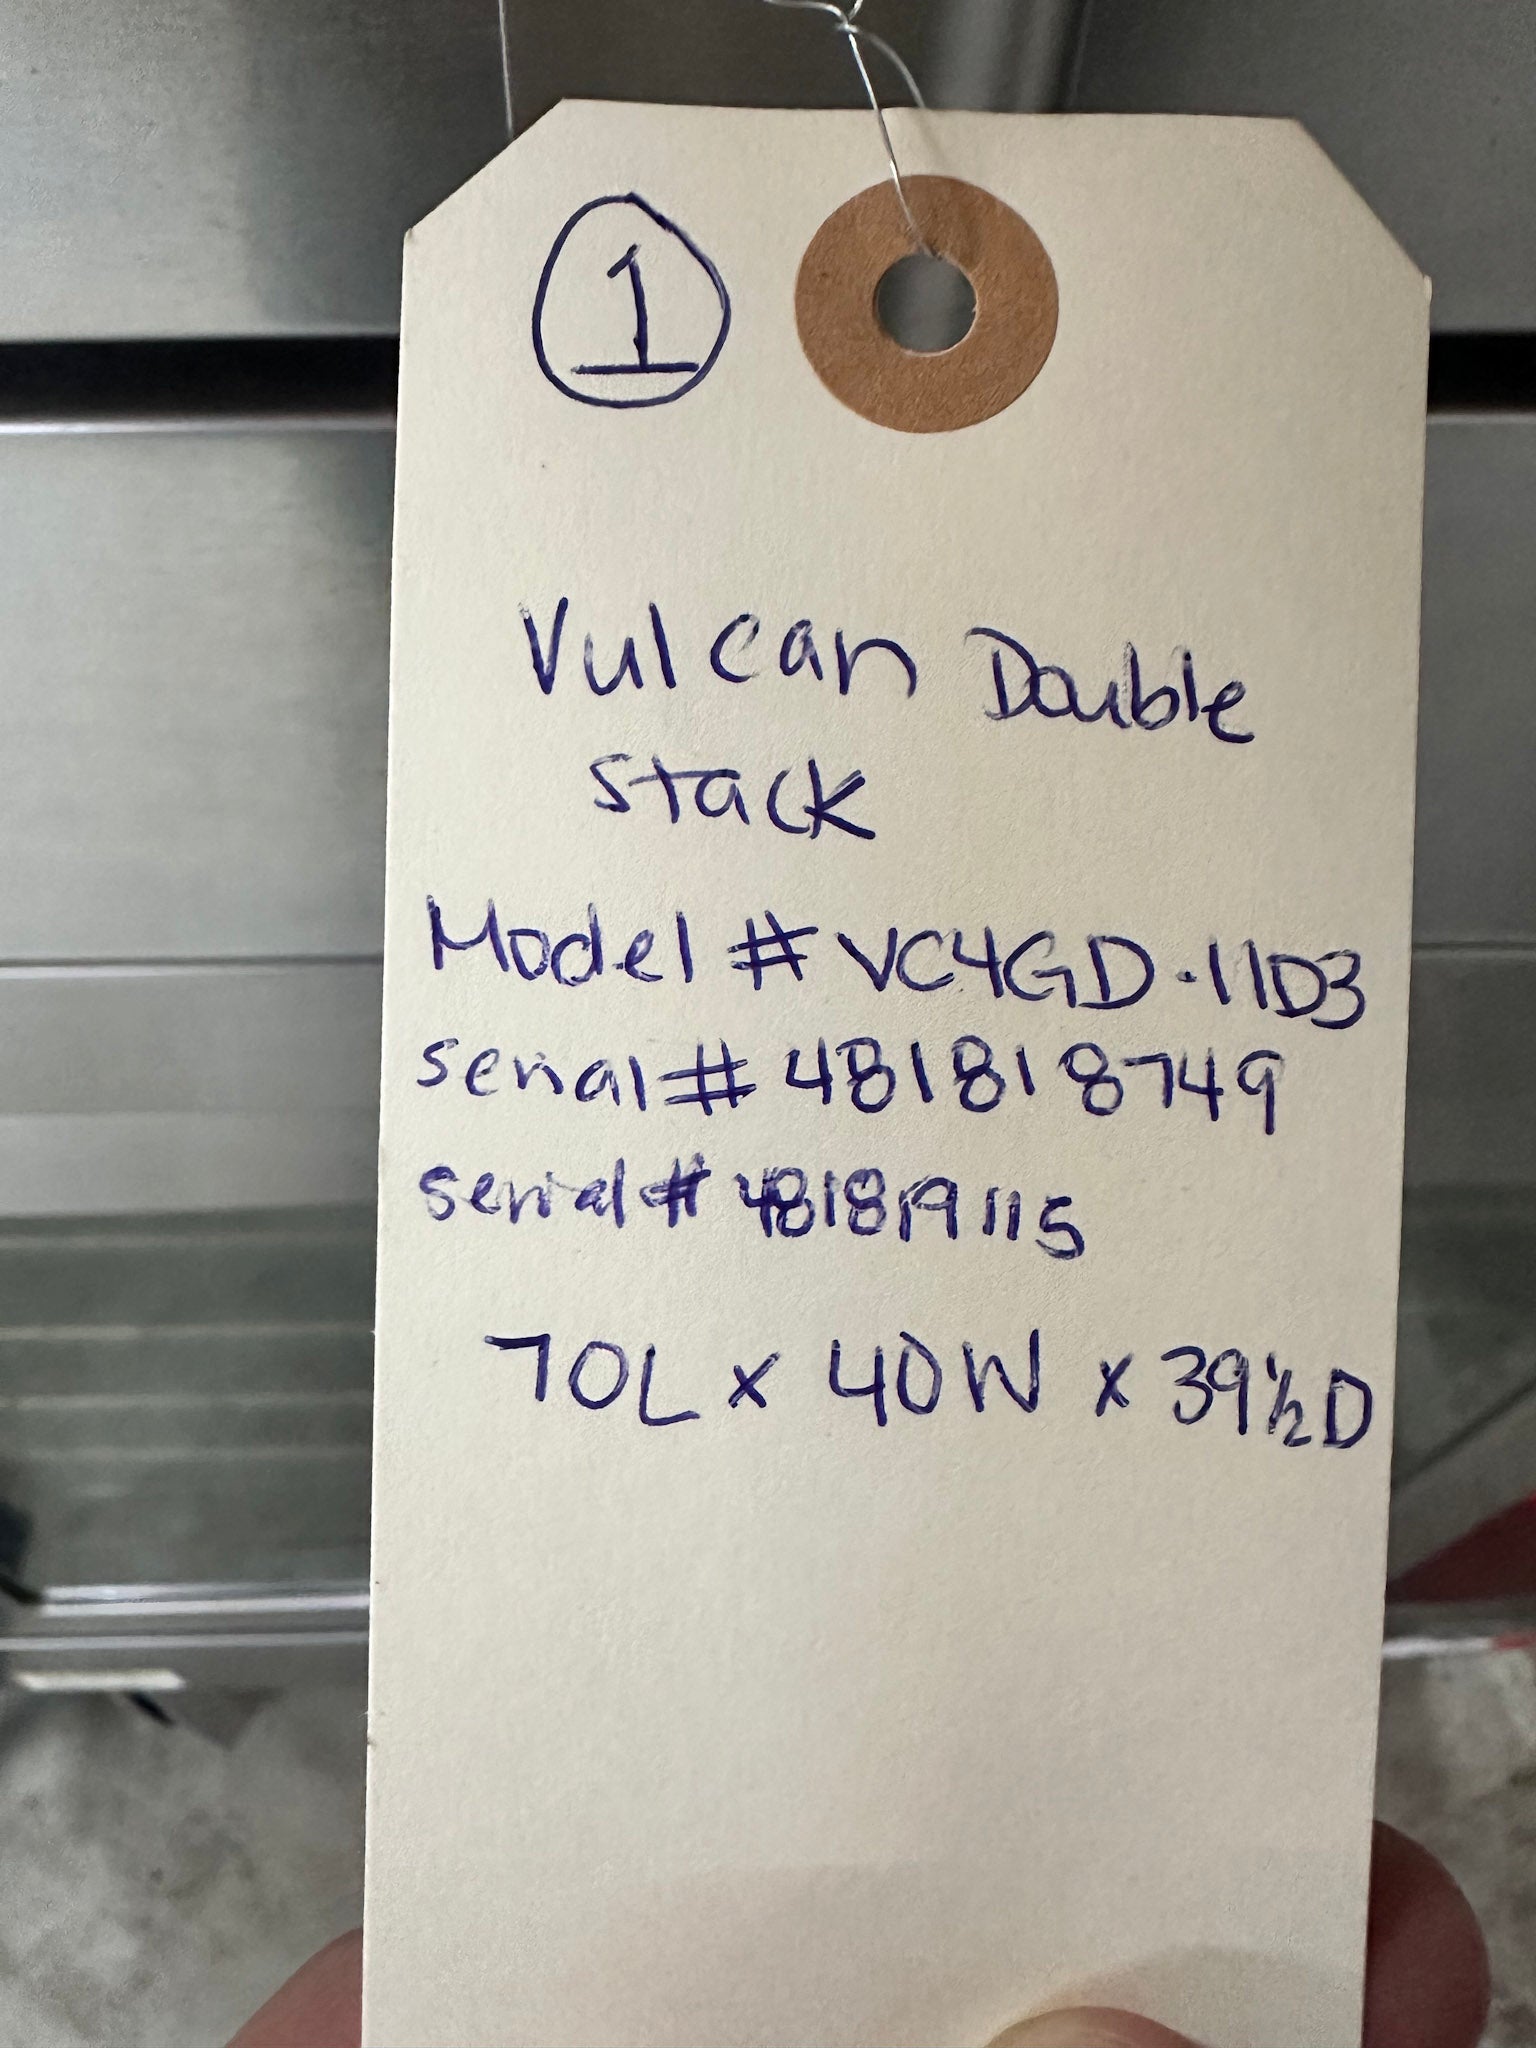 1
Vulcan Double
stack
Model # VC4GD-11D3
serial # 481818749
serial # 481819115
70L x 40W x 39½D